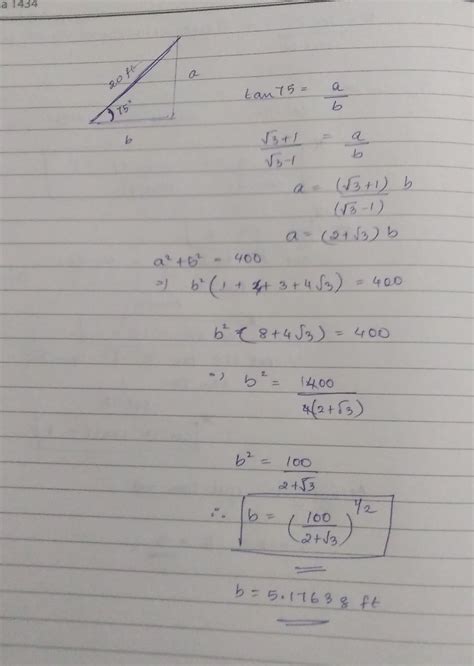 a 1434
20 ft
a
75°
b
tan 75 = a/b
√3+1/√3-1 = a/b
a = (√3+1)/(√3-1) b
a = (2+√3) b
a² + b² = 400
=> b² (1 + 4 + 3 + 4√3) = 400
b² (8 + 4√3) = 400
=> b² = 400/4(2+√3)
b² = 100/2+√3
∴ b = (100/2+√3)^1/2
b = 5.17638 ft